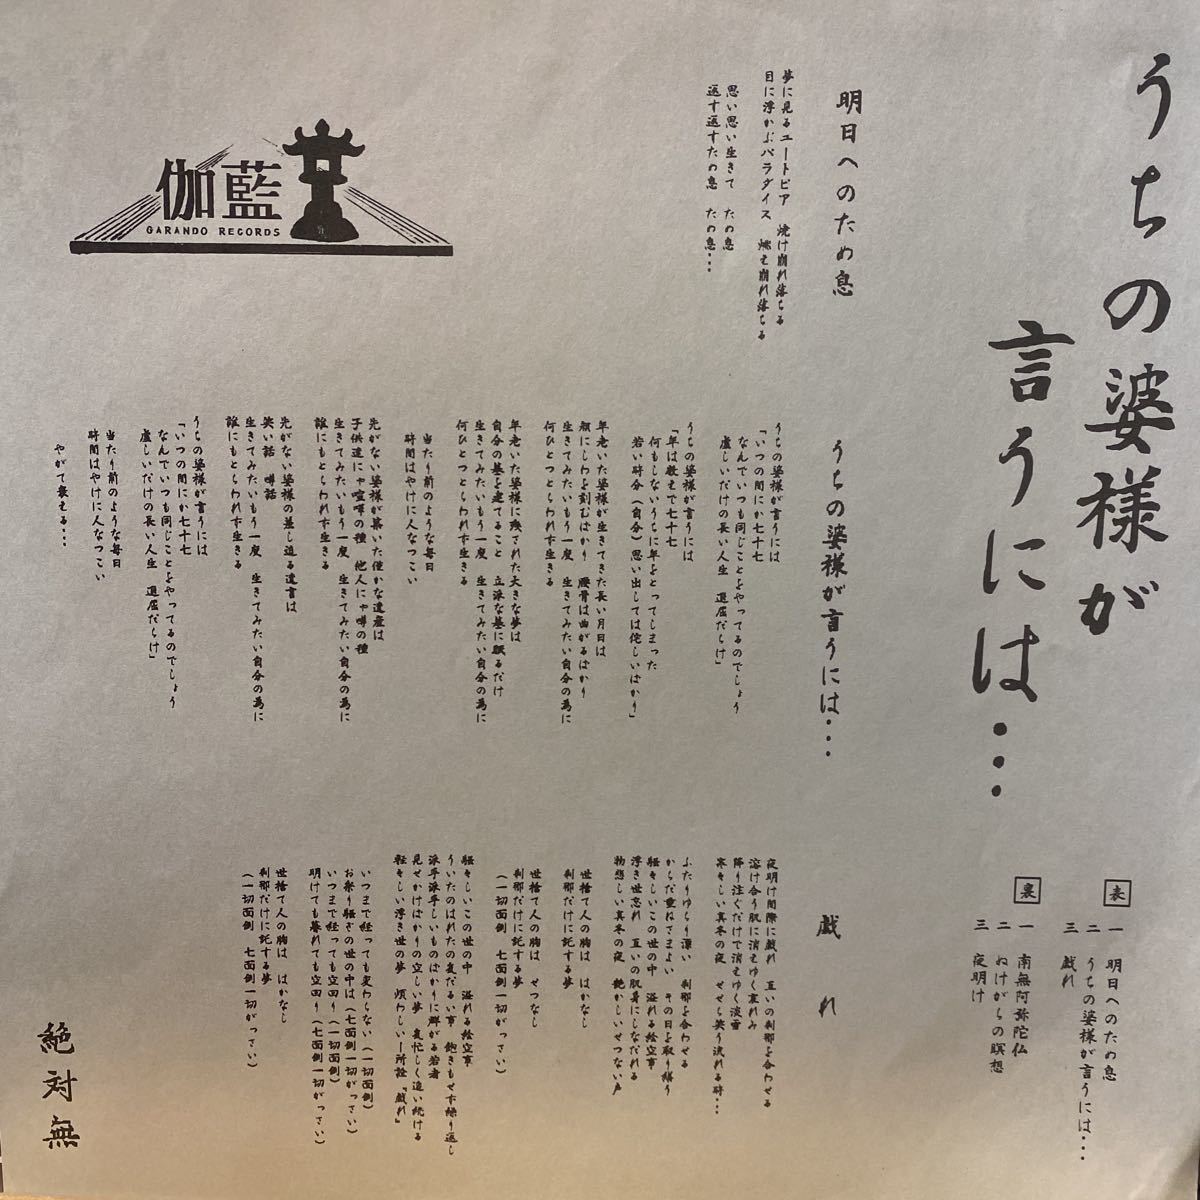 うちの婆様が
言うには…
表
一 明日へのため息
二 うちの婆様が言うには…
三 戯れ
裏
一 南無阿弥陀仏
二 ぬけがらの瞑想
三 夜明け
明日へのため息
夢に見るユートピア 焼け崩れ落ちる
目に浮かぶパラダイス 燃え崩れ落ちる
思い思い生きて ため息
返す返すため息 ため息…
伽藍
GARANDO RECORDS
うちの婆様が言うには…
うちの婆様が言うには
「いつの間にか七十七
なんでいつも同じことをやってるのでしょう
虚しいだけの長い人生 退屈だらけ」
うちの婆様が言うには
「年は数えで七十七
何もしないうちに年をとってしまった
若い時分(自分)思い出しては侘しいばかり」
年老いた婆様が生きてきた長い月日は
顔にしわを刻むばかり 腰骨は曲がるばかり
生きてみたいもう一度 生きてみたい自分の為に
何ひとつとらわれず生きる
年老いた婆様に残された大きな夢は
自分の墓を建てること 立派な墓に眠るだけ
生きてみたいもう一度 生きてみたい自分の為に
何ひとつとらわれず生きる
当たり前のような毎日
時間はやけに人なつこい
先がない婆様が築いた僅かな遺産は
子供達にゃ喧嘩の種 他人にゃ噂の種
生きてみたいもう一度 生きてみたい自分の為に
誰にもとらわれず生きる
先がない婆様の差し迫る遺言は
笑い話 噂話
生きてみたいもう一度 生きてみたい自分の為に
誰にもとらわれず生きる
うちの婆様が言うには
「いつの間にか七十七
なんでいつも同じことをやってるのでしょう
虚しいだけの長い人生 退屈だらけ」
当たり前のような毎日
時間はやけに人なつこい
やがて衰える…
戯れ
夜明け間際に戯れ 互いの刹那を合わせる
溶け合う肌に消えゆく哀れみ
降り注ぐだけで消えゆく淡雪
寒々しい真冬の夜 せせら笑う流れる時…
ふたりゆらり漂い 刹那を合わせる
からだ重ねさまよい その日を取り繕う
騒々しいこの世の中 溢れる絵空事
浮き世忘れ 互いの肌身にしなだれる
物悲しい真冬の夜 艶かしいせつない声
世捨て人の胸は はかなし
刹那だけに託する夢
世捨て人の胸は せつなし
刹那だけに託する夢
(一切面倒 七面倒一切がっさい)
騒々しいこの世の中 溢れる絵空事
ういたのはれたの気だるい事 飽きもせず繰り返し
派手派手しいものばかりに群がる若者
見せかけばかりの空しい夢 気忙しく追い続ける
軽々しい浮き世の夢 煩わしい一所詮『戯れ』
いつまで経っても変わらない(一切面倒)
お祭り騒ぎの世の中は(七面倒一切がっさい)
いつまで経っても空回り(一切面倒)
明けても暮れても空回り(七面倒一切がっさい)
世捨て人の胸は はかなし
刹那だけに託する夢
(一切面倒 七面倒一切がっさい)
絶対無